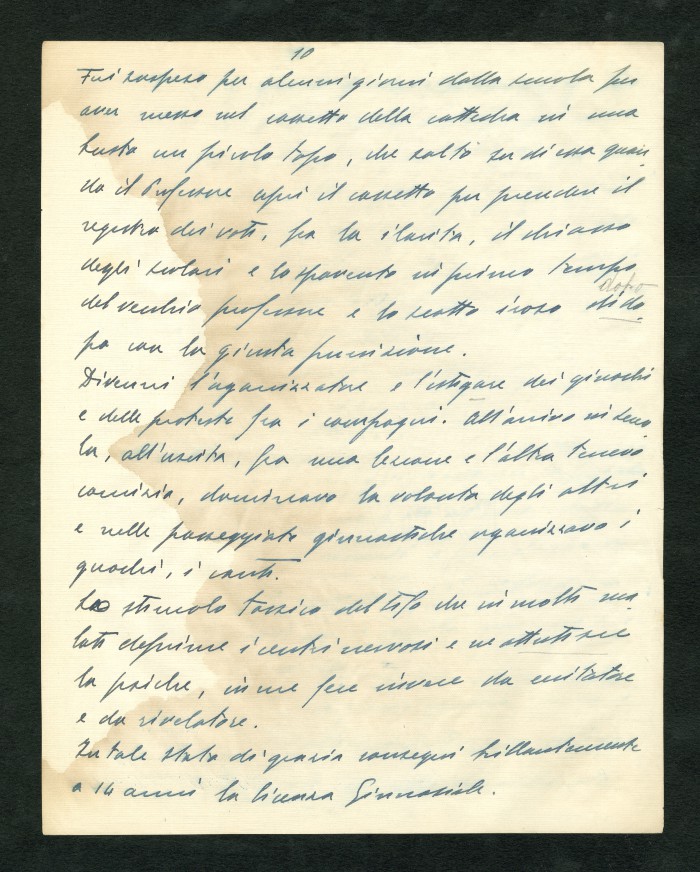 10
Fui sospeso per alcuni giorni dalla scuola per
aver messo nel cassetto della cattedra in una
busta un picolo topo, che saltò su di essa quan-
do il Professore aprì il cassetto per prendere il
registro dei voti, fra la ilarità, il chiasso
degli scolari e lo spavento in primo tempo
del vecchio professore e lo scatto iroso
dopo
po con la giusta punizione.
Divenni l'organizzatore e l'istigare dei giuochi
e delle proteste fra i compagni. All'arrivo in scuo
la, all'uscita, fra una lezione e l'altra tenevo
comizio, dominavo la volontà degli altri
e nelle passeggiate ginnastiche organizzavo i
giuochi, i canti.
Lo stimolo tossico del tifo che in molti ma-
lati deprime i centri nervosi e ne
la psiche, in me fece invece da eccitatore
e da rivelatore.
In tale stato di grazia conseguì brillantemente
a 14 anni la licenza Ginnasiale.